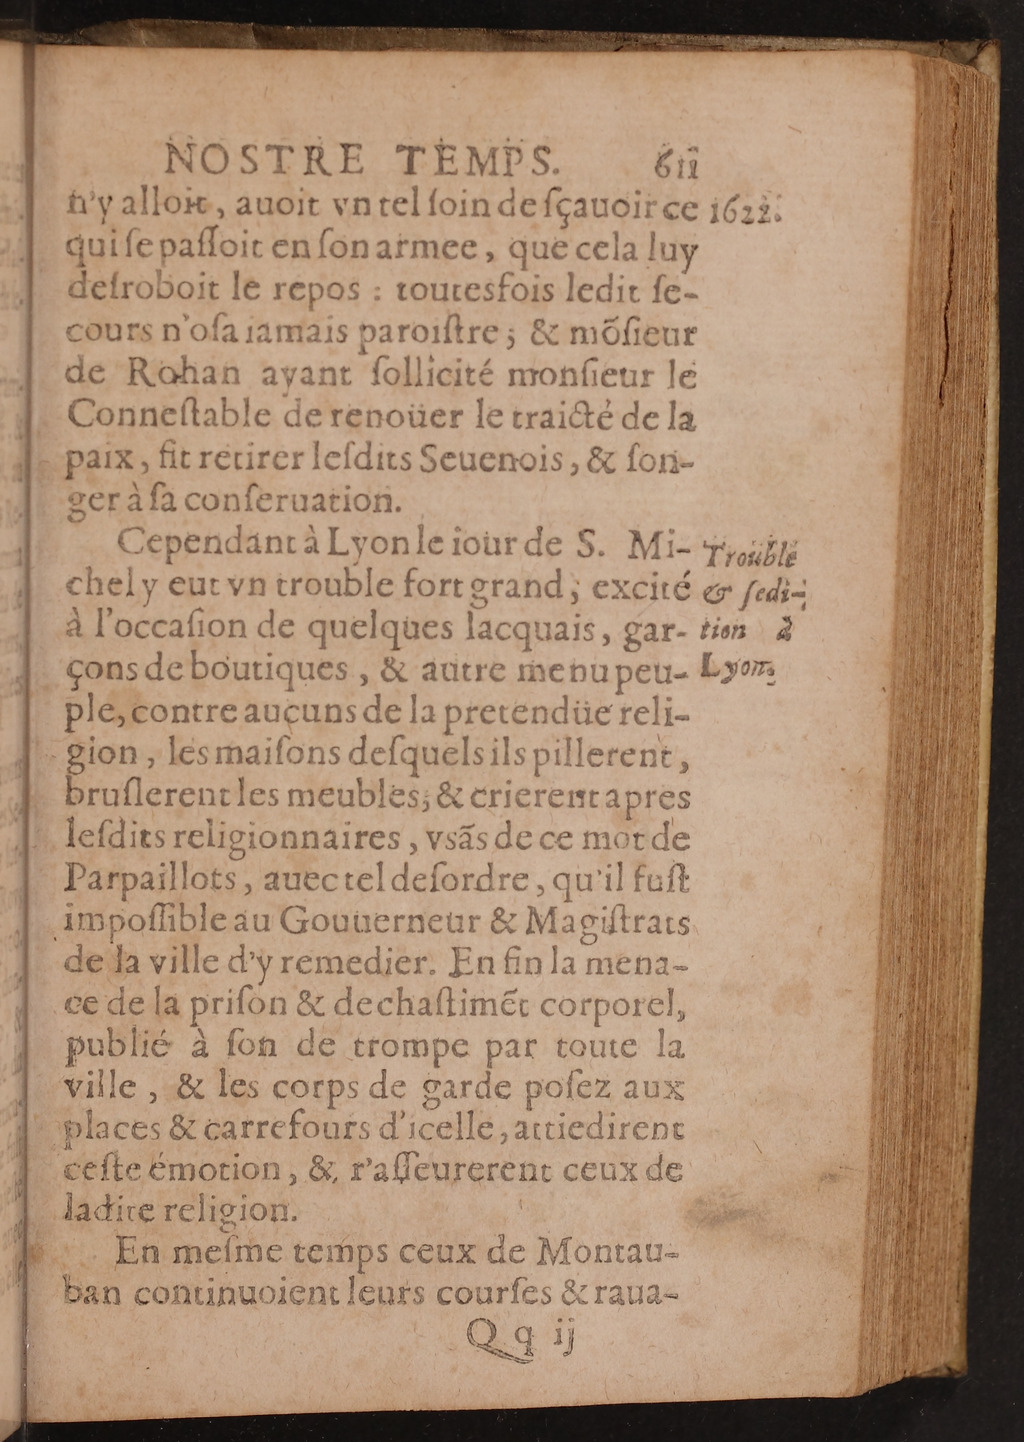 NOSTRE TEMPS. 611
n'y alloit, auoit vn tel ſoin de ſçauoir ce 1622.
qui ſe paſſoit en ſon armee, que cela luy
deſroboit le repos : toutesfois ledit ſe-
cours n'oſa iamais paroiſtre ; & mõſieur
de Rohan ayant ſollicité monſieur le
Conneſtable de renoüer le traicté de la
paix, fit retirer leſdits Seuenois, & ſon-
ger à ſa conſeruation.
Cependant à Lyon le iour de S. Mi- Trouble
chel y eut vn trouble fort grand ; excité & ſedi-
à l'occaſion de quelques lacquais, gar- tion à
çons de boutiques , & autre menu peu- Lyon.
ple, contre aucuns de la pretendüe reli-
gion , les maiſons deſquels ils pillerent,
bruſlerent les meubles; & crierent apres
leſdits religionnaires , vsãs de ce mot de
Parpaillots, auec tel deſordre, qu'il fuſt
impoſſible au Gouuerneur & Magiſtrats
de la ville d'y remedier. En fin la mena-
ce de la priſon & de chaſtimẽt corporel,
publié à ſon de trompe par toute la
ville , & les corps de garde poſez aux
places & carrefours d'icelle, attiedirent
ceſte émotion, & r'aſſeurerent ceux de
ladite religion.
En meſme temps ceux de Montau-
ban continuoient leurs courſes & raua-
Qq ij